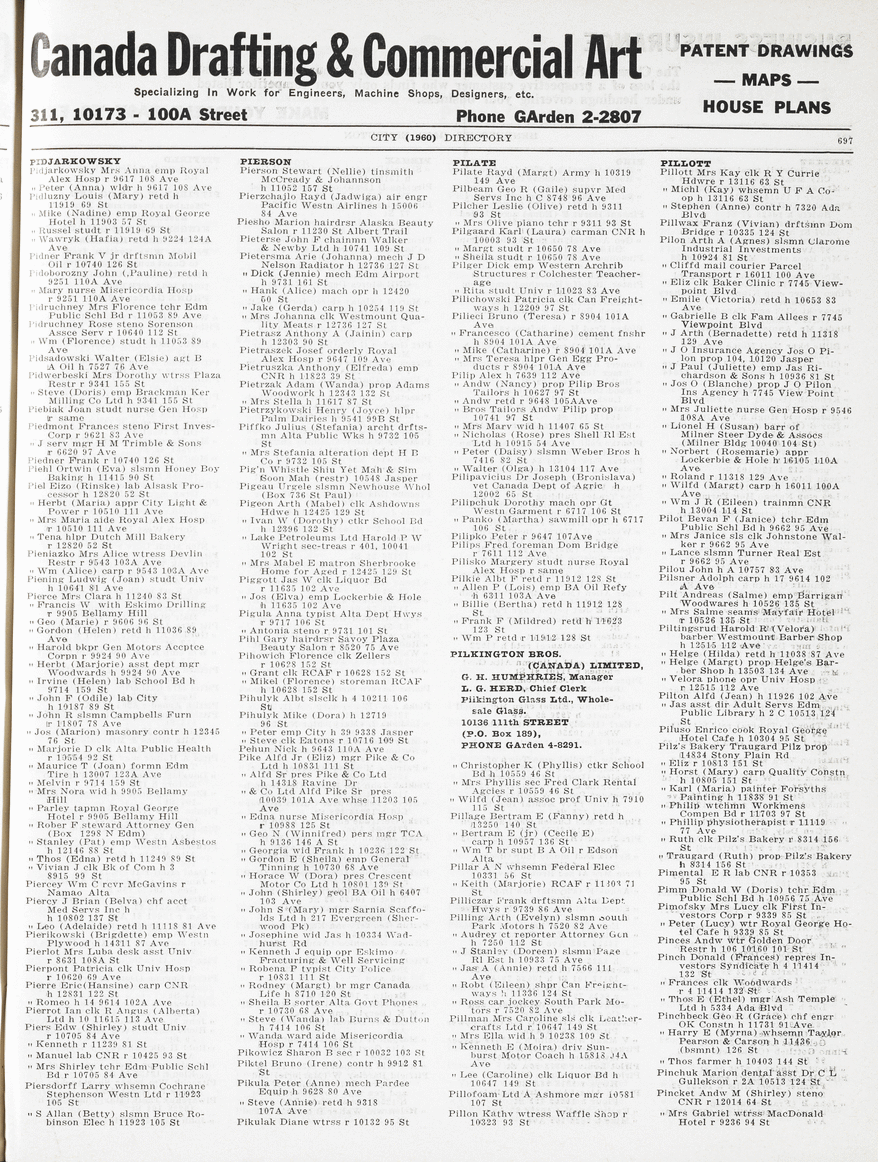 Canada Drafting & Commercial Art
Specializing In Work for Engineers, Machine Shops, Designers, etc.
311, 10173 - 100A Street Phone GArden 2-2807
PATENT DRAWINGS
— MAPS —
HOUSE PLANS
CITY (1960) DIRECTORY 697
PIDJARKOWSKY
Pidjarkowsky Mrs Anna emp Royal
Alex Hosp r 9617 108 Ave
" Peter (Anna) wldr h 9617 108 Ave
Pidluzny Louis (Mary) retd h
11919 69 St
" Mike (Nadine) emp Royal George
Hotel h 11903 57 St
" Russel studt r 11919 69 St
" Wawryk (Hafia) retd h 9224 124A
Ave
Pidner Frank V jr drftsmn Mobil
Oil r 10740 126 St
Pidoborozny John (,Pauline) retd h
9251 110A Ave
" Mary nurse Misericordia Hosp
r 9251 110A Ave
Pidruchney Mrs Florence tchr Edm
Public Schl Bd r 11053 89 Ave
Pidruchney Rose steno Sorenson
Assce Serv r 10640 112 St
" Wm (Florence) studt h 11053 89
Ave
Pidsadowski Walter (Elsie) agt B
A Oil h 7527 76 Ave
Pidwerbeski Mrs Dorothy wtrss Plaza
Restr r 9341 155 St
" Steve (Doris) emp Brackman Ker
Milling Co Ltd h 9341 155 St
Piebiak Joan studt nurse Gen Hosp
r same
Piedmont Frances steno First Inves-
Corp r 9621 83 Ave
" J serv mgr H M Trimble & Sons
r 6620 97 Ave
Piedner Frank r 10740 126 St
Piehl Ortwin (Eva) slsmn Honey Boy
Baking h 11415 90 St
Piel Eizo (Rinske) lab Alsask Pro-
cessor h 12820 52 St
" Herbt (Maria) appr City Light &
Power r 10510 111 Ave
" Mrs Maria aide Royal Alex Hosp
r 10510 111 Ave
" Tena hlpr Dutch Mill Bakery
r 12820 52 St
Pieniazko Mrs Alice wtress Devlin
Restr r 9543 103A Ave
" Wm (Alice) carp r 9543 103A Ave
Piening Ludwig (Joan) studt Univ
h 10641 81 Ave
Pierce Mrs Clara h 11240 83 St
" Francis W with Eskimo Drilling
r 9905 Bellamy Hill
" Geo (Marie) r 9606 96 St
" Gordon (Helen) retd h 11036 89
Ave
" Harold bkpr Gen Motors Accptce
Corpn r 9924 90 Ave
" Herbt (Marjorie) asst dept mgr
Woodwards h 9924 90 Ave
" Irvine (Helen) lab School Bd h
9714 159 St
" John F (Odile) lab City
h 19187 89 St
" John R slsmn Campbells Furn
r 11807 78 Ave
" Jos (Marion) masonry contr h 12345
76 St
" Marjorie D clk Alta Public Health
r 10554 92 St
" Maurice T (Joan) formn Edm
Tire h 13007 123A Ave
" Melvin r 9714 159 St
" Mrs Nora wid h 9905 Bellamy
Hill
" Parley tapmn Royal George
Hotel r 9905 Bellamy Hill
" Rober F steward Attorney Gen
(Box 1298 N Edm)
" Stanley (Pat) emp Westn Asbestos
h 12146 88 St
" Thos (Edna) retd h 11249 89 St
" Vivian J clk Bk of Com h 3
8915 99 St
Piercey Wm C rcvr McGavins r
Namao Alta
Piercy J Brian (Belva) chf acct
Med Servs Inc h
h 10802 137 St
" Leo (Adelaide) retd h 11118 81 Ave
Pierikowski (Brigdette) emp Westn
Plywood h 14311 87 Ave
Pierlot Mrs Luba desk asst Univ
r 8631 108A St
Pierpont Patricia clk Univ Hosp
r 10620 69 Ave
Pierre Eric (Hansine) carp CNR
h 12831 122 St
" Romeo h 14 9614 102A Ave
Pierrot Ian clk R Angus (Alberta)
Ltd h 10 11615 113 Ave
Piers Edw (Shirley) studt Univ
r 10705 84 Ave
" Kenneth r 11239 81 St
" Manuel lab CNR r 10425 93 St
" Mrs Shirley tchr Edm Public Schl
Bd r 10705 84 Ave
Piersdorff Larry whsemn Cochrane
Stephenson Westn Ltd r 11923
105 St
" S Allan (Betty) slsmn Bruce Ro-
binson Elec h 11923 105 St
PIERSON
Pierson Stewart (Nellie) tinsmith
McCready & Johannson
h 11052 157 St
Pierzchajlo Rayd (Jadwiga) air engr
Pacific Westn Airlines h 15006
84 Ave
Piesho Marion hairdrsr Alaska Beauty
Salon r 11230 St Albert Trail
Pieterse John F chainmn Walker
& Newby Ltd h 10741 109 St
Pietersma Arie (Johanna) mech J D
Nelson Radiator h 12736 127 St
" Dick (Jennie) mech Edm Airport
h 9731 161 St
" Hank (Alice) mach opr h 12420
50 St
" Jake (Gerda) carp h 10254 119 St
" Mrs Johanna clk Westmount Qua-
lity Meats r 12736 127 St
Pietrasz Anthony A (Jainin) carp
h 12303 90 St
Pietraszek Josef orderly Royal
Alex Hosp r 9647 109 Ave
Pietruszka Anthony (Elfreda) emp
CNR h 11823 39 St
Pietrzak Adam (Wanda) prop Adams
Woodwork h 12343 132 St
" Mrs Stella h 11617 87 St
Pietrzykowski Henry (Joyce) hlpr
Palm Dairies h 9541 99B St
Piffko Julius (Stefania) archt drfts-
mn Alta Public Wks h 9732 105
St
" Mrs Stefania alteration dept H B
Co r 9732 105 St
Pig'n Whistle Shiu Yet Mah & Sim
Soon Mah (restr) 10548 Jasper
Pigeau Urgele slsmn Newhouse Whol
(Box 736 St Paul)
Pigeon Arth (Mabel) clk Ashdowns
Hdwe h 12425 129 St
" Ivan W (Dorothy) ctkr School Bd
h 12396 132 St
" Lake Petroleums Ltd Harold P W
Wright sec-treas r 401, 10041
102 St
" Mrs Mabel E matron Sherbrooke
Home for Aged r 12425 129 St
Piggott Jas W clk Liquor Bd
r 11635 102 Ave
" Jos (Elva) emp Lockerbie & Hole
h 11635 102 Ave
Pigula Anna typist Alta Dept Hwys
r 9717 106 St
" Antonia steno r 9731 101 St
Pihl Gary hairdrsr Savoy Plaza
Beauty Salon r 8520 75 Ave
Pihowich Florence clk Zellers
r 10628 152 St
" Grant clk RCAF r 10628 152 St
" Mikel (Florence) storeman RCAF
h 10628 152 St
Pihulyk Albt slsclk h 4 10211 106
St
Pihulyk Mike (Dora) h 12719
96 St
" Peter emp City h 39 9338 Jasper
" Steve clk Eatons r 10716 109 St
Pehun Nick h 9643 110A Ave
Pike Alfd Jr (Eliz) mgr Pike & Co
Ltd h 10831 111 St
" Alfd Sr pres Pike & Co Ltd
h 14318 Ravine Dr
" & Co Ltd Alfd Pike Sr pres
10039 101A Ave whse 11203 105
Ave
" Edna nurse Misericordia Hosp
r 10988 125 St
" Geo N (Winnifred) pers mgr TCA
h 9136 146 A St
" Georgia wid Frank h 10236 122 St
" Gordon E (Sheila) emp General
Tinning h 10730 68 Ave
" Horace W (Dora) pres Crescent
Motor Co Ltd h 10801 139 St
" John (Shirley) geol BA Oil h 6407
103 Ave
" John S (Mary) mgr Sarnia Scaffo-
lds Ltd h 217 Evergreen (Sher-
wood Pk)
" Josephine wid Jas h 10334 Wad-
hurst Rd
" Kenneth J equip opr Eskimo
Fracturing & Well Servicing
" Robena P typist City Police
r 10831 111 St
" Rodney (Margt) br mgr Canada
Life h 8710 120 St
" Sheila B sorter Alta Govt Phones
r 10730 68 Ave
" Steve (Wanda) lab Burns & Dutton
h 7414 106 St
" Wanda ward aide Misericordia
Hosp r 7414 106 St
Pikowicz Sharon B sec r 10032 103 St
Piktel Bruno (Irene) contr h 9912 81
St
Pikula Peter (Anne) mech Pardee
Equip h 9628 80 Ave
" Steve (Annie) retd h 9318
107A Ave
Pikulak Diane wtrss r 10132 95 St
PILATE
Pilate Rayd (Margt) Army h 10319
149 Ave
Pilbeam Geo R (Gaile) supvr Med
Servs Inc h C 8748 96 Ave
Pilcher Leslie (Olive) retd h 9311
93 St
" Mrs Olive piano tchr r 9311 93 St
Pilgaard Karl (Laura) carman CNR h
10003 93 St
" Margt studt r 10650 78 Ave
" Sheila studt r 10650 78 Ave
Pilger Dick emp Western Archrib
Structures r Colchester Teacher-
age
" Rita studt Univ r 11023 83 Ave
Pilichowski Patricia clk Can Freight-
ways h 12209 97 St
Pilieci Bruno (Teresa) r 8904 101A
Ave
" Francesco (Catharine) cement fnshr
h 8904 101A Ave
" Mike (Catharine) r 8904 101A Ave
" Mrs Teresa hlpr Gen Egg Pro-
ducts r 8904 101A Ave
Pilip Alex h 7639 112 Ave
" Andw (Nancy) prop Pilip Bros
Tailors h 10627 97 St
" Andw retd r 9648 105A Ave
" Bros Tailors Andw Pilip prop
10741 97 St
" Mrs Mary wid h 11407 65 St
" Nicholas (Rose) pres Shell Rl Est
Ltd h 10915 54 Ave
" Peter (Daisy) slsmn Weber Bros h
7416 82 St
" Walter (Olga) h 13104 117 Ave
Pilipavicius Dr Joseph (Bronislava)
vet Canada Dept of Agric h
12002 65 St
Pilipchuk Dorothy mach opr Gt
Westn Garment r 6717 106 St
" Panko (Martha) sawmill opr h 6717
106 St
Pilipko Peter r 9647 107A Ave
Pilips Fred foreman Dom Bridge
r 7611 112 Ave
Pilisko Margery studt nurse Royal
Alex Hosp r same
Pilkie Albt F retd r 11912 128 St
" Allen P (Lois) emp BA Oil Refy
h 6311 103A Ave
" Billie (Bertha) retd h 11912 128
St
" Frank F (Mildred) retd h 11623
123 St
" Wm P retd r 11912 128 St
PILKINGTON BROS.
(CANADA) LIMITED,
G. H. HUMPHRIES, Manager
L. G. HERD, Chief Clerk
Pilkington Glass Ltd., Whole-
sale Glass.
10136 111th STREET
(P.O. Box 189),
PHONE GArden 4-8291.
" Christopher K (Phyllis) ctkr School
Bd h 10559 46 St
" Mrs Phyllis sec Fred Clark Rental
Agcies r 10559 46 St
" Wilfd (Jean) assoc prof Univ h 7910
115 St
Pillage Bertram E (Fanny) retd h
13250 140 St
" Bertram E (jr) (Cecile E)
carp h 10957 136 St
" Wm T br supt B A Oil r Edson
Alta
Pillar A N whsemn Federal Elec
10331 56 St
" Keith (Marjorie) RCAF r 11303 71
St
Pilliczar Frank drftsmn Alta Dept
Hwys r 9739 86 Ave
Pilling Arth (Evelyn) slsmn South
Park Motors h 7520 82 Ave
" Audrey ct reporter Attorney Gen
h 7250 112 St
" J Stanley (Doreen) slsmn Page
Rl Est h 10933 75 Ave
" Jas A (Annie) retd h 7566 111
Ave
" Robt (Eileen) shpr Can Freight-
ways h 11336 124 St
" Ross car jockey South Park Mo-
tors r 7520 82 Ave
Pillman Mrs Caroline sls clk Leather-
crafts Ltd r 10647 149 St
" Mrs Ella wid h 9 10238 109 St
" Kenneth E (Moira) driv Sun-
burst Motor Coach h 15818 94A
Ave
" Lee (Caroline) clk Liquor Bd h
10647 149 St
Pillofoam Ltd A Ashmore mgr 10581
107 St
Pillon Kathy wtress Waffle Shop r
10323 93 St
PILLOTT
Pillott Mrs Kay clk R Y Currie
Hdwre r 13116 63 St
" Michl (Kay) whsemn U F A Co-
op h 13116 63 St
" Stephen (Anne) contr h 7320 Ada
Blvd
Pillwax Franz (Vivian) drftsmn Dom
Bridge r 10335 124 St
Pilon Arth A (Agnes) slsmn Clarome
Industrial Investments
h 10924 81 St
" Cliffd mail courier Parcel
Transport r 16011 100 Ave
" Eliz clk Baker Clinic r 7745 View-
point Blvd
" Emile (Victoria) retd h 10653 83
Ave
" Gabrielle B clk Fam Allces r 7745
Viewpoint Blvd
" J Arth (Bernadette) retd h 11318
129 Ave
" J O Insurance Agency Jos O Pi-
lon prop 104, 10120 Jasper
" J Paul (Juliette) emp Jas Ri-
chardson & Sons h 10936 81 St
" Jos O (Blanche) prop J O Pilon
Ins Agency h 7745 View Point
Blvd
" Mrs Juliette nurse Gen Hosp r 9546
108A Ave
" Lionel H (Susan) barr of
Milner Steer Dyde & Assocs
(Milner Bldg 10040 104 St)
" Norbert (Rosemarie) appr
Lockerbie & Hole h 16105 110A
Ave
" Roland r 11318 129 Ave
" Wilfd (Margt) carp h 16011 100A
Ave
" Wm J R (Eileen) trainmn CNR
h 13004 114 St
Pilot Bevan F (Janice) tchr Edm
Public Schl Bd h 9662 95 Ave
" Mrs Janice sls clk Johnstone Wal-
ker r 9662 95 Ave
" Lance slsmn Turner Real Est
r 9662 95 Ave
Pilou John h A 10757 83 Ave
Pilsner Adolph carp h 17 9614 102
A Ave
Pilt Andreas (Salme) emp Barrigan
Woodwares h 10526 135 St
" Mrs Salme seams Mayfair Hotel
r 10526 135 St
Piltingsrud Harold E (Velora)
barber Westmount Barber Shop
h 12515 112 Ave
" Helge (Hilda) retd h 11038 87 Ave
" Helge (Margt) prop Helge's Bar-
ber Shop h 13503 134 Ave
" Velora phone opr Univ Hosp
r 12515 112 Ave
Pilton Alfd (Jean) h 11926 102 Ave
" Jas asst dir Adult Servs Edm
Public Library h 2 C 10513 124
St
Piluso Enrico cook Royal George
Hotel Cafe h 10304 95 St
Pilz's Bakery Traugard Pilz prop
14834 Stony Plain Rd
" Eliz r 10813 151 St
" Horst (Mary) carp Quality Constn
h 10805 151 St
" Karl (Maria) painter Forsyths
Painting h 11838 91 St
" Philip wtchmn Workmens
Compen Bd r 11703 97 St
" Phillip physiotherapist r 11119
77 Ave
" Ruth clk Pilz's Bakery r 8314 156
St
" Traugard (Ruth) prop Pilz's Bakery
h 8314 156 St
Pimental E R lab CNR r 10353
95 St
Pimm Donald W (Doris) tchr Edm
Public Schl Bd h 10956 75 Ave
Pimofsky Mrs Lucy clk First In-
vestors Corp r 9339 85 St
" Peter (Lucy) wtr Royal George Ho-
tel Cafe h 9339 85 St
Pinces Andw wtr Golden Door
Restr h 106 10160 101 St
Pinch Donald (Frances) repres In-
vestors Syndicate h 4 11414
132 St
" Frances clk Woodwards
r 4 11414 132 St
" Thos E (Ethel) mgr Ash Temple
Ltd h 5334 Ada Blvd
Pinchbeck Geo R (Grace) chf engr
OK Constn h 11731 91 Ave
" Harry E (Myrna) whsemn Taylor
Pearson & Carson h 11436
(bsmnt) 126 St
" Thos farmer h 10403 144 St
Pinchuk Marion dental asst Dr C L
Gullekson r 2A 10513 124 St
Pincket Andw M (Shirley) steno
CNR r 12014 64 St
" Mrs Gabriel wtrss MacDonald
Hotel r 9236 94 St